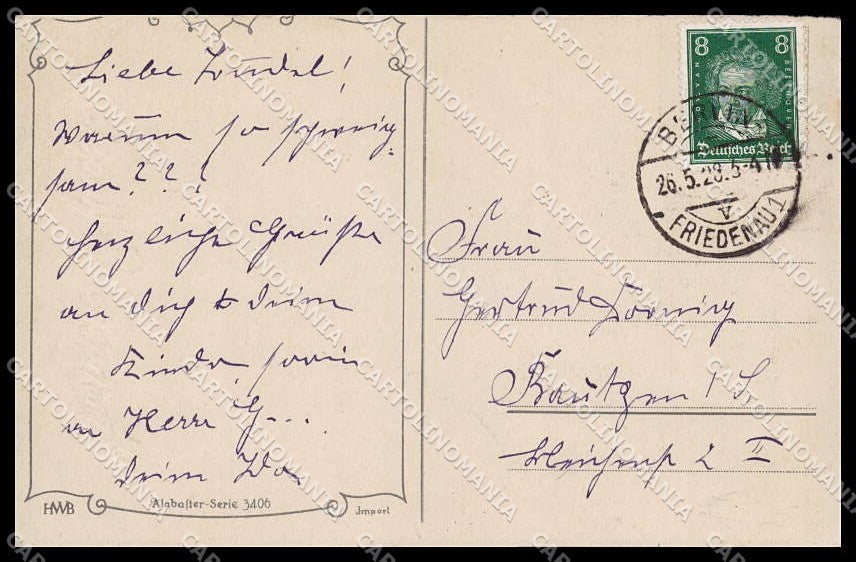 Liebe Trudel!
Warum so schweig-
sam???
Herzliche Grüße
an Dich & Deine
Kinder, sowie
an Herrn G...
Deine
HWB
Alabaster-Serie 3406
Import
8 8
Deutsches Reich
BERLIN
26.5.28.5-
V
FRIEDENAU 1
Frau
Gertrud
Bautzen i/S
2 II
CARTOLINOMANIA